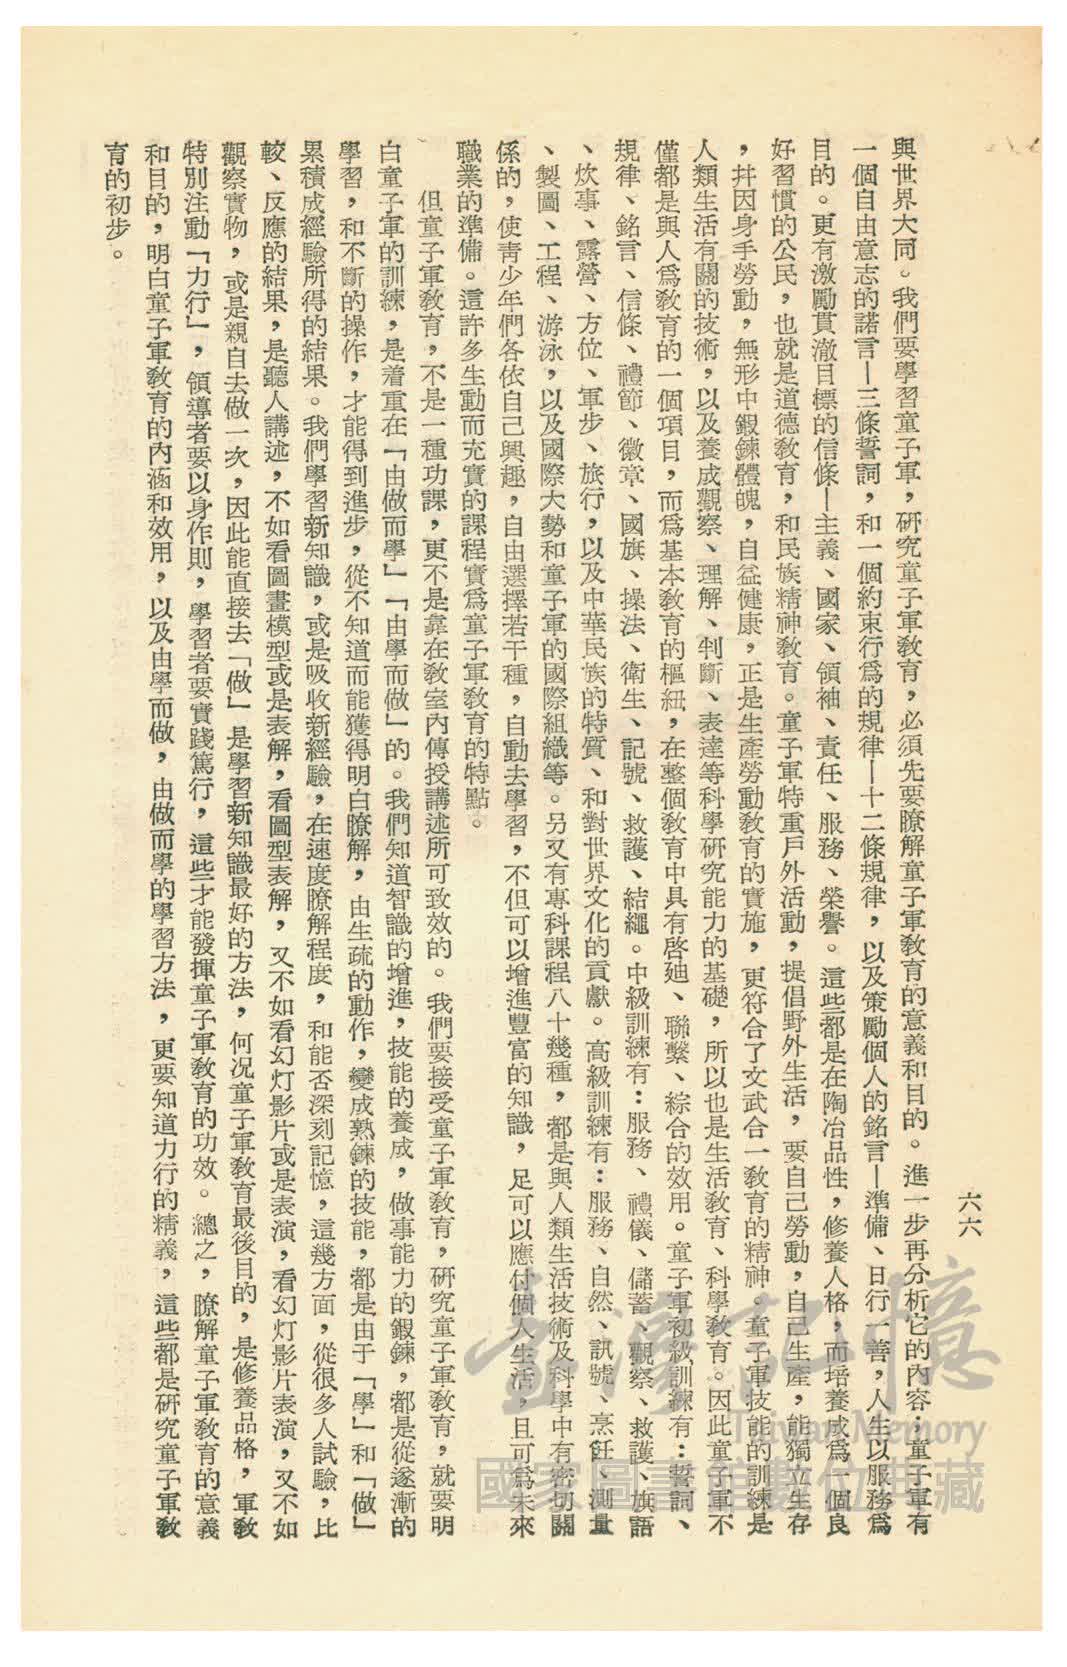 六六
與世界大同。我們要學習童子軍，研究童子軍教育，必須先要瞭解童子軍教育的意義和目的。進一步再分析它的內容：童子軍有
一個自由意志的諾言—三條誓詞，和一個約束行爲的規律—十二條規律，以及策勵個人的銘言—準備、日行一善，人生以服務爲
目的。更有激勵貫澈目標的信條—主義、國家、領袖、責任、服務、榮譽。這些都是在陶冶品性，修養人格，而培養成爲一個良
好習慣的公民，也就是道德教育，和民族精神教育。童子軍特重戶外活動，提倡野外生活，要自己勞動，自己生產，能獨立生存
，幷因身手勞動，無形中鍛鍊體魄，自益健康，正是生產勞動教育的實施，更符合了文武合一教育的精神。童子軍技能的訓練是
人類生活有關的技術，以及養成觀察、理解、判斷、表達等科學研究能力的基礎，所以也是生活教育、科學教育。因此童子軍不
僅都是與人爲敎育的一個項目，而爲基本敎育的樞紐，在整個敎育中具有啓廸、聯繫、綜合的效用。童子軍初級訓練有：誓詞、
規律、銘言、信條、禮節、徽章、國旗、操法、衛生、記號、救護、結繩。中級訓練有：服務、禮儀、儲蓄、觀察、救護、旗語
、炊事、露營、方位、軍步、旅行，以及中華民族的特質、和對世界文化的貢獻。高級訓練有：服務、自然、訊號、烹飪、測量
、製圖、工程、游泳，以及國際大勢和童子軍的國際組織等。另又有專科課程八十幾種，都是與人類生活技術及科學中有密切關
係的，使靑少年們各依自己興趣，自由選擇若干種，自動去學習，不但可以增進豐富的知識，足可以應付個人生活，且可爲未來
職業的準備。這許多生動而充實的課程實爲童子軍敎育的特點。
但童子軍敎育，不是一種功課，更不是靠在敎室內傳授講述所可致效的。我們要接受童子軍敎育，研究童子軍敎育，就要明
白童子軍的訓練，是着重在「由做而學」「由學而做」的。我們知道智識的增進，技能的養成，做事能力的鍛鍊，都是從逐漸的
學習，和不斷的操作，才能得到進步，從不知道而能獲得明白瞭解，由生疏的動作，變成熟鍊的技能，都是由于「學」和「做」
累積成經驗所得的結果。我們學習新知識，或是吸收新經驗，在速度瞭解程度，和能否深刻記憶，這幾方面，從很多人試驗，比
較、反應的結果，是聽人講述，不如看圖畫模型或是表解，看圖型表解，又不如看幻灯影片或是表演，看幻灯影片表演，又不如
觀察實物，或是親自去做一次，因此能直接去「做」是學習新知識最好的方法，何况童子軍敎育最後目的，是修養品格，軍敎
特別注動「力行」，領導者要以身作則，學習者要實踐篤行，這些才能發揮童子軍敎育的功效。總之，瞭解童子軍敎育的意義
和目的，明白童子軍敎育的內涵和效用，以及由學而做，由做而學的學習方法，更要知道力行的精義，這些都是研究童子軍敎
育的初步。
臺灣記憶
Taiwan Memory
國家圖書館數位典藏